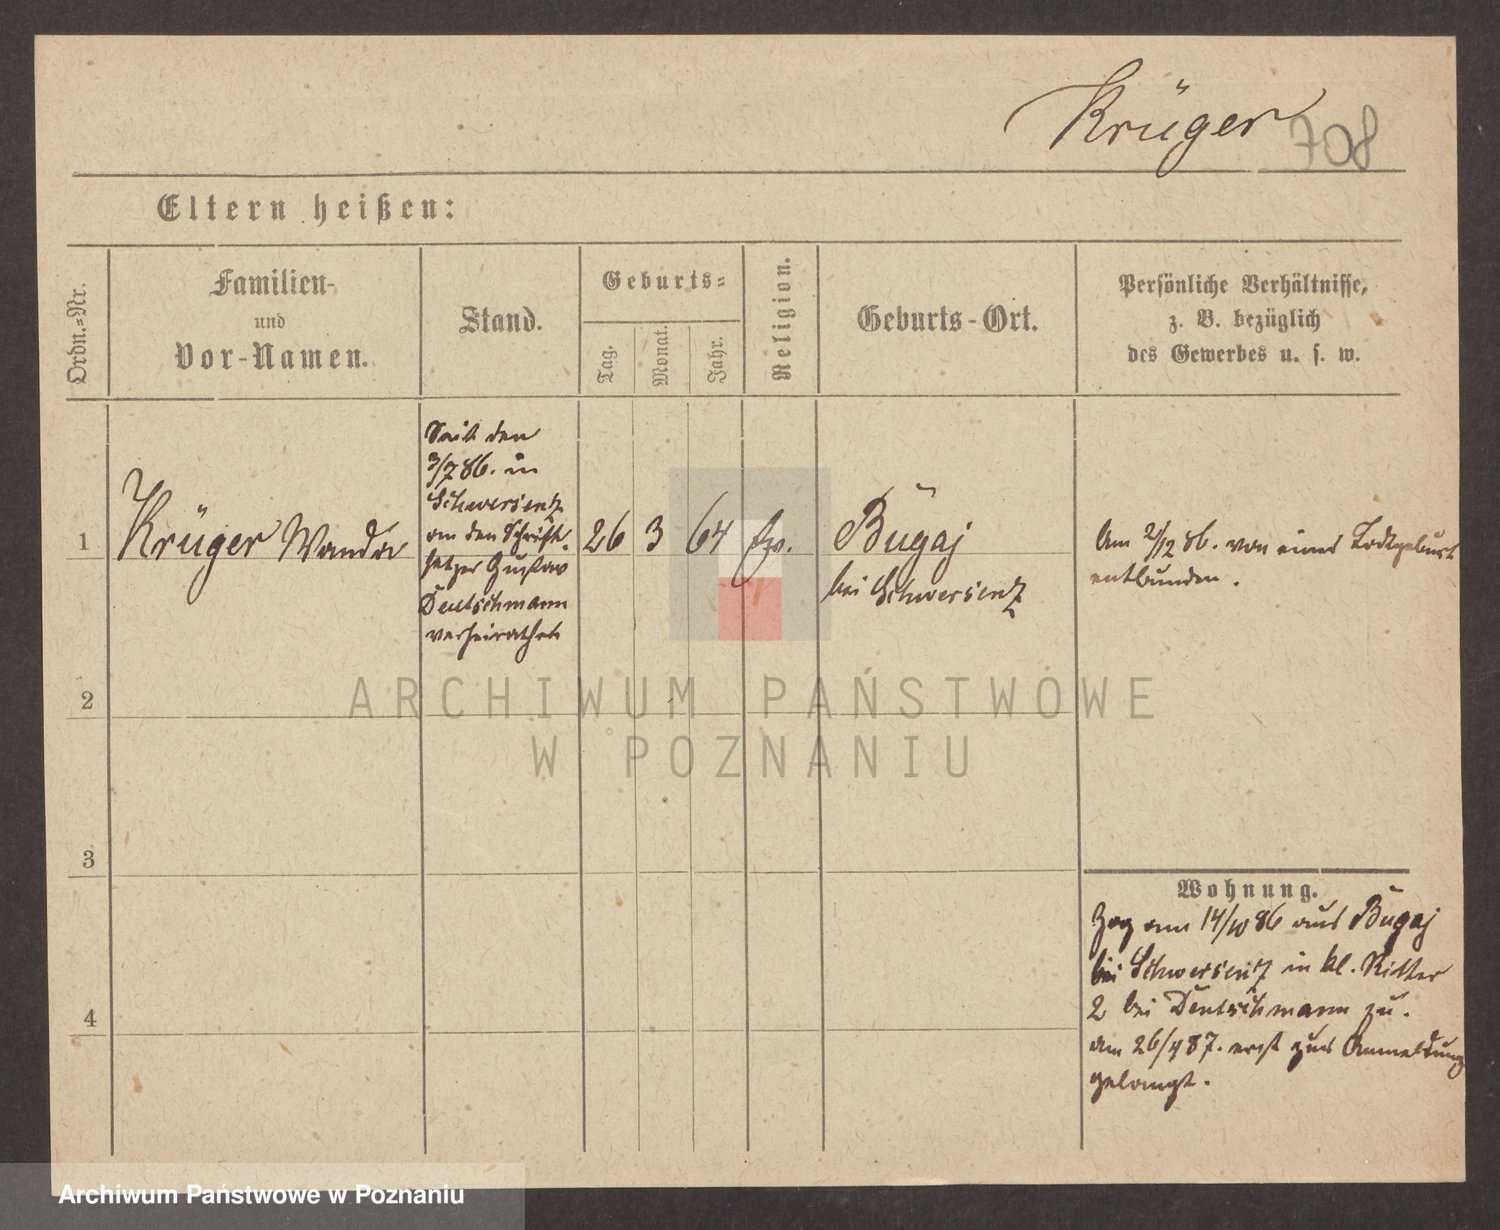 Krüger
708
Eltern heißen:
Ordn.-Nr.
Familien-
und
Vor-Namen.
Stand.
Geburts-
Tag.
Monat.
Jahr.
Religion.
Geburts-Ort.
Persönliche Verhältnisse,
z. B. bezüglich
des Gewerbes u. s. w.
1
Krüger Wanda
Seit den
3/7 86. in
Schwersenz
an den Schrift-
setzer Gustav
Deutschmann
verheirathet
26
3
64
Bugaj
bei Schwersenz
Am 2/12 86. von einer Todtgeburt
entbunden.
2
3
4
Wohnung.
Zog am 14/10 86 aus Bugaj
bei Schwersenz in kl. Ritter
2 bei Deutschmann zu.
am 26/4 87. erst zur Anmeldung
gelangt.
ARCHIWUM PAŃSTWOWE
W POZNANIU
Archiwum Państwowe w Poznaniu